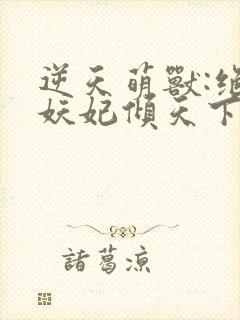 逆天萌獸:絕
妖妃傾天下
諸葛涼